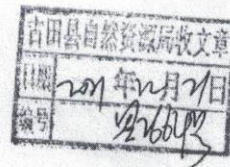 古田县自然资源局收文章
日期 2021年12月21日
编号